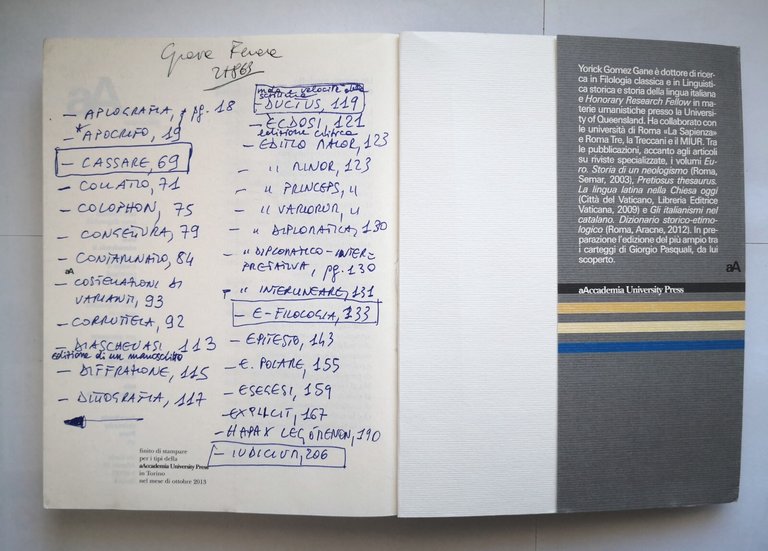 21863
- APLOGRAFIA, pg. 18
* APOCRIFO, 19
- CASSARE, 69
- COLLATIO, 71
- COLOPHON, 75
- CONGETTURA, 79
- CONTAMINATO, 84
- COSTELLAZIONI DI
VARIANTI, 93
- CORRUTTELA, 92
- DIASCHEUASI, 113
edizione di un manoscritto
- DIFFRAZIONE, 115
- DITTOGRAFIA, 117
finito di stampare
per i tipi della
aAccademia University Press
in Torino
nel mese di ottobre 2013
- DUCTUS, 119
- ECDOSI, 121
edizione critica
- EDITIO MAIOR, 123
- " MINOR, 123
- " PRINCEPS, "
- " VARIORUM, "
- " DIPLOMATICA, 130
- " DIPLOMATICO-INTER-
PRETATIVA, pg. 130
" INTERLINEARE, 131
- E-FILOLOGIA, 133
- EPITESTO, 143
- E. POLARE, 155
- ESEGESI, 159
- EXPLICIT, 167
- HAPAX LEGÓMENON, 190
- IUDICIUM, 206
Yorick Gomez Gane è dottore di ricer-
ca in Filologia classica e in Linguisti-
ca storica e storia della lingua italiana
e Honorary Research Fellow in ma-
terie umanistiche presso la Universi-
ty of Queensland. Ha collaborato con
le università di Roma «La Sapienza»
e Roma Tre, la Treccani e il MIUR. Tra
le pubblicazioni, accanto agli articoli
su riviste specializzate, i volumi Eu-
ro. Storia di un neologismo (Roma,
Semar, 2003), Pretiosus thesaurus.
La lingua latina nella Chiesa oggi
(Città del Vaticano, Libreria Editrice
Vaticana, 2009) e Gli italianismi nel
catalano. Dizionario storico-etimo-
logico (Roma, Aracne, 2012). In pre-
parazione l'edizione del più ampio tra
i carteggi di Giorgio Pasquali, da lui
scoperto.
aA
aAccademia University Press